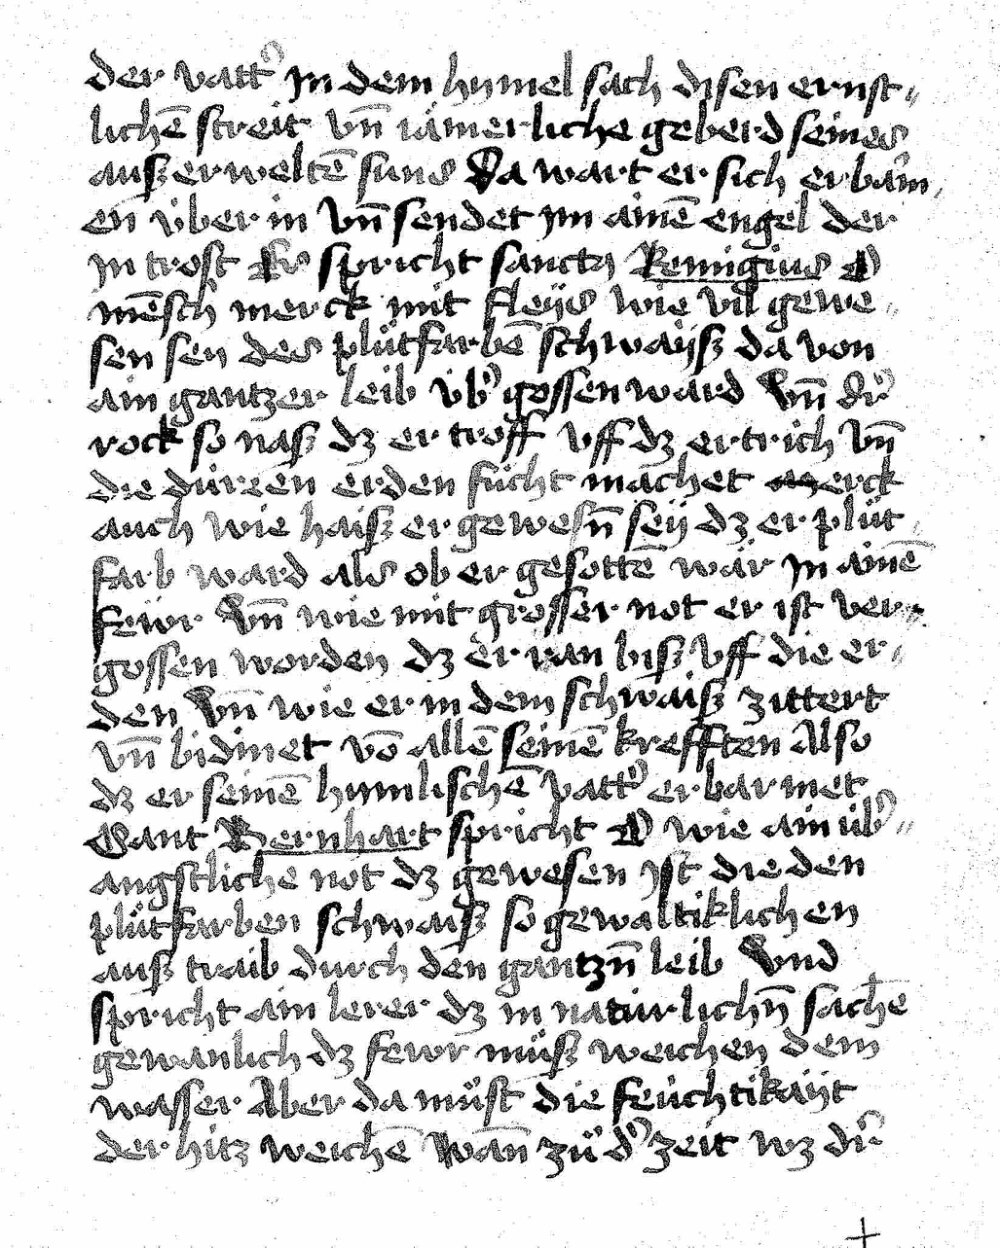 der vattˀ jn dem hymel sach disen ernst„
lichē streit vn̄ iamerliche geberd seines
auszerweltē suns Da wart er sich erbarm„
en v̇ber in vn̄ sendet jm ainē engel der
jn trost Es spricht sanctus Remigius O
mēsch merck mit fleijs wie vil gewe„
sen seÿ des plütfarbē schwaÿsz da von
ain gantzer leib v̇bˀ gossen ward Vn̄ dˀ
rock so nasz dz er troff vff dz ertrich vn̄
die dürren erden fücht machet Merck
auch wie haisz er gewesn̄ seij dz er plüt„
farb ward als ob er gesottē wär jn ainē
feẅr Vn̄ wie mit grosser not er ist ver„
gossen worden dz er ran bisz vff die er„
den Vn̄ wie er in dem schwaisz zittert
vn̄ bidmet vō allē seinē krefften Also
dz er seinē himlischē vattˀ erbarmet
Sant Bernhart spricht O wie ain übˀ„
angstliche not dz gewesen jst die den
plütfarben schwaisz so gewaltiklichen
ausz traib durch den gantzn̄ leib Vnd
spricht ain lerer dz in natürlichn̄ sachē
gewanlich dz fewr müsz weichen dem
wasser Aber da müst die feüchtikaÿt
der hitz weichē Wan̄ zü dˀ zeit wz dˀ